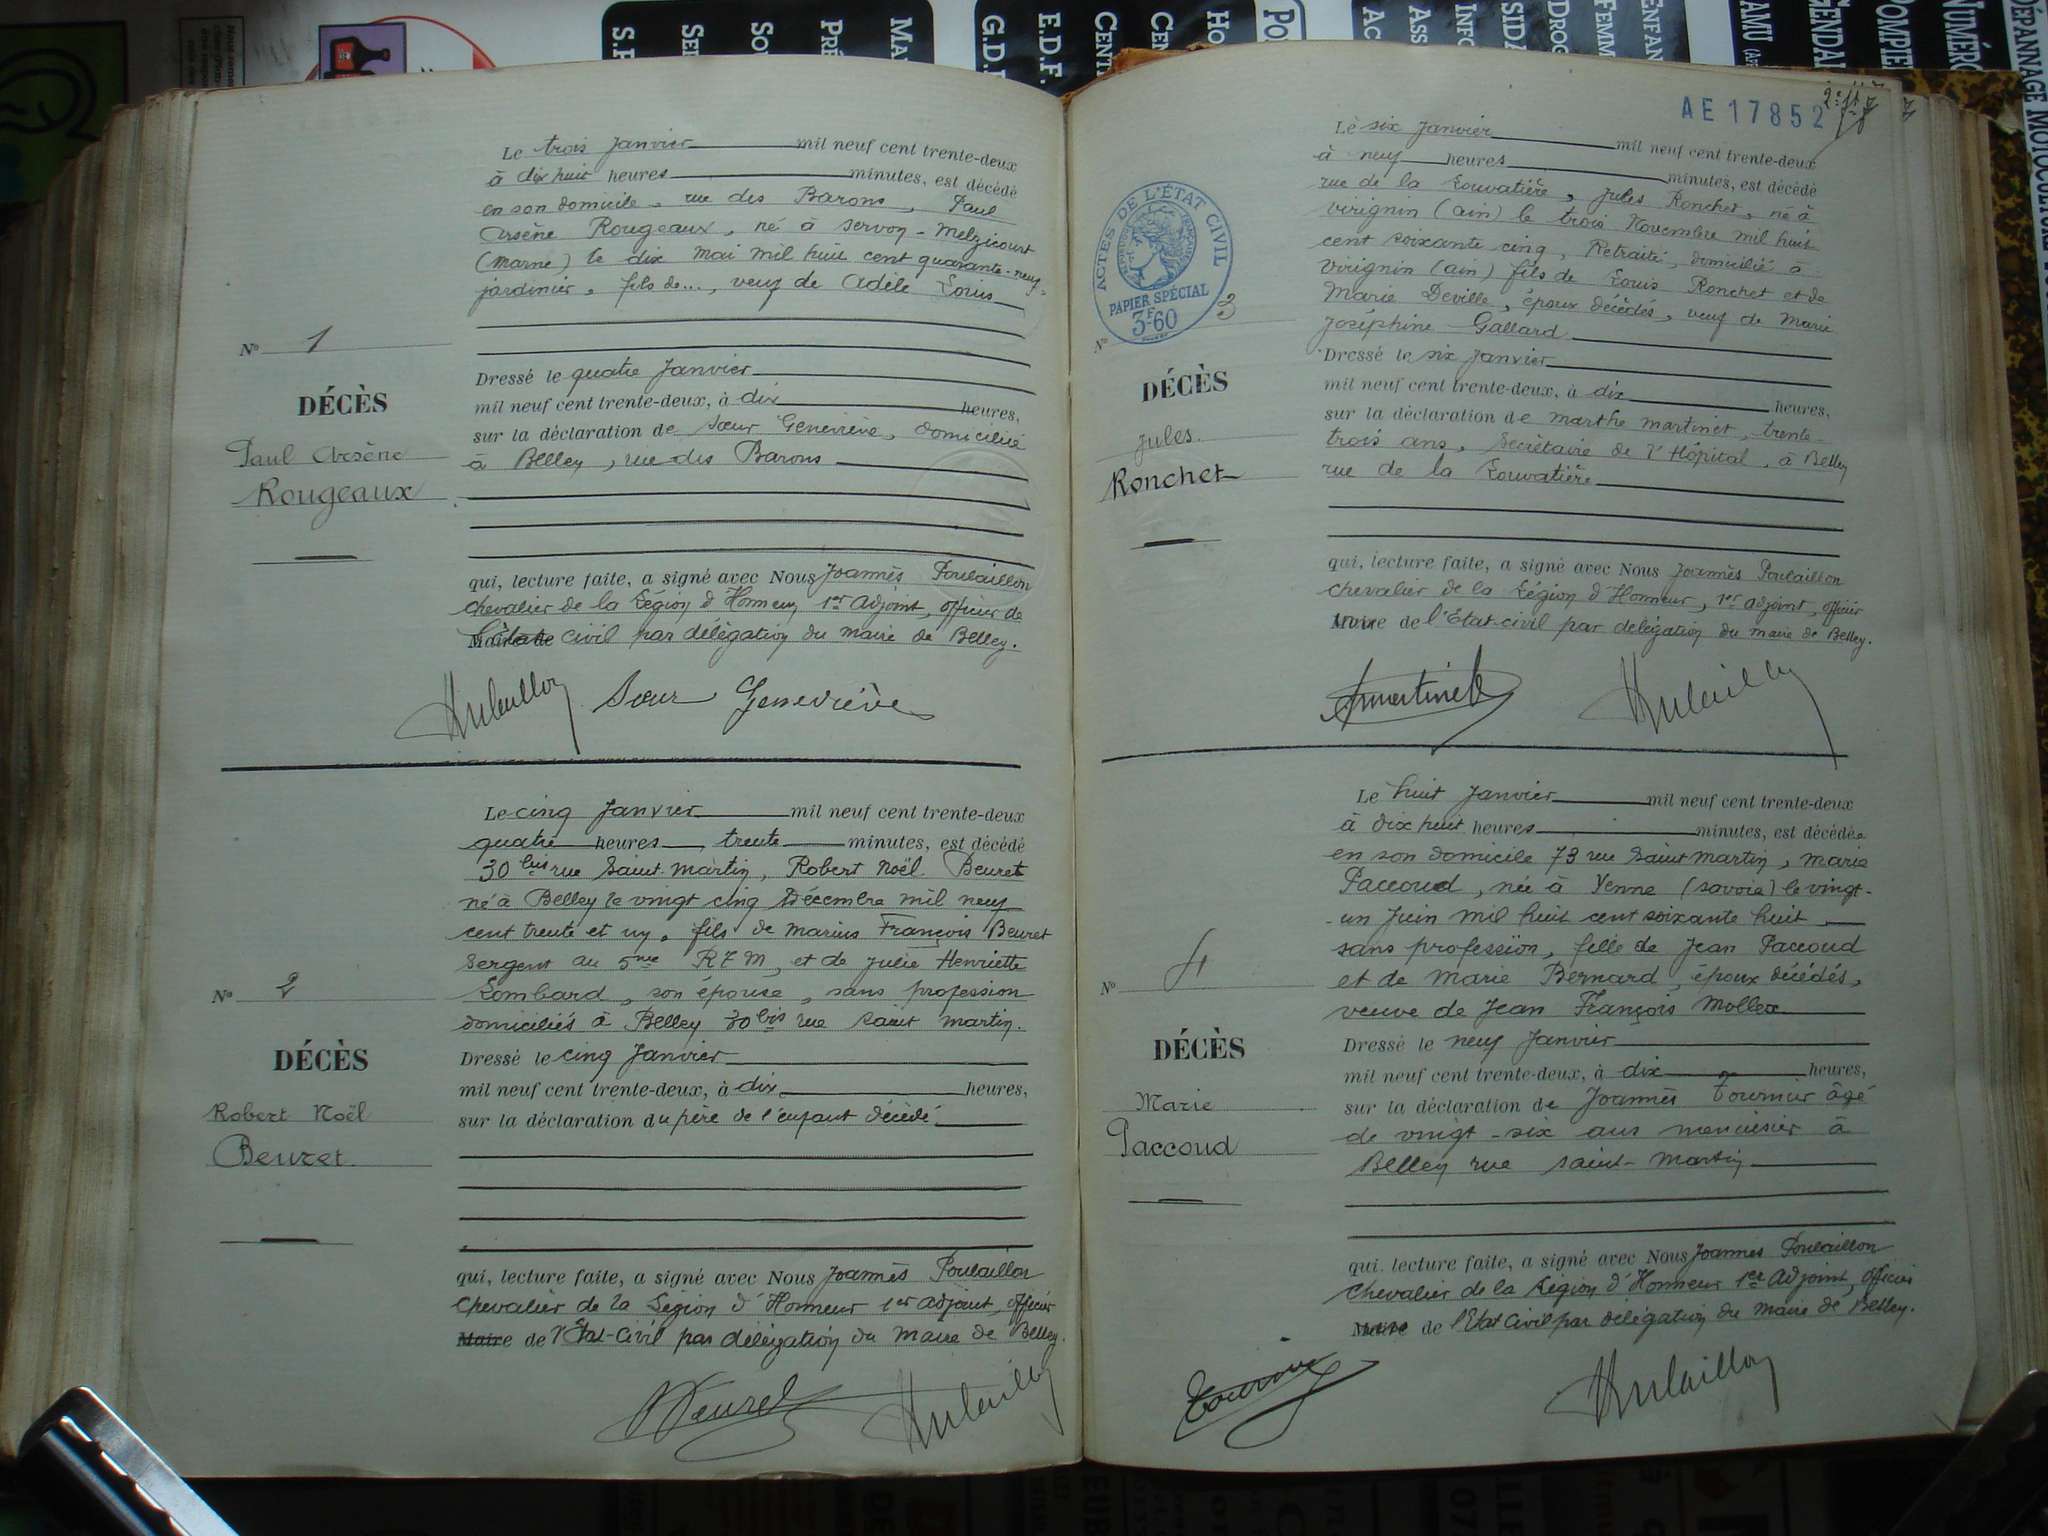 Le trois Janvier mil neuf cent trente-deux
à dix huit heures minutes, est décédé
en son domicile, rue des Barons, Paul
Arsène Rougeaux, né à Servon-Melzicourt
(Marne) le dix mai mil huit cent quarante-neuf,
jardinier, fils de..., veuf de Adèle Louis
N° 1
DÉCÈS
Paul Arsène
Rougeaux
Dressé le quatre Janvier
mil neuf cent trente-deux, à dix heures,
sur la déclaration de Sœur Geneviève, domiciliée
à Belley, rue des Barons
qui, lecture faite, a signé avec Nous Joannès Poulaillon
Chevalier de la Légion d'Honneur, 1er Adjoint, officier de
civil par délégation du maire de Belley.
Sœur Geneviève
Le cinq Janvier mil neuf cent trente-deux
quatre heures trente minutes, est décédé
30 bis rue Saint-Martin, Robert Noël Beuret
né à Belley le vingt cinq Décembre mil neuf
cent trente et un, fils de Marius François Beuret
Sergent au 5me R T M, et de Julie Henriette
Lombard, son épouse, sans profession
domiciliés à Belley 30 bis rue Saint Martin.
N° 2
DÉCÈS
Robert Noël
Beuret
Dressé le cinq Janvier
mil neuf cent trente-deux, à dix heures,
sur la déclaration du père de l'enfant décédé
qui, lecture faite, a signé avec Nous Joannès Poulaillon
Chevalier de la Légion d'Honneur 1er adjoint, officier
Maire de l'État-Civil par délégation du maire de Belley.
Beuret
AE 17852
Le six Janvier mil neuf cent trente-deux
à neuf heures minutes, est décédé
rue de la Louvatière, Jules Ronchet, né à
Virignin (Ain) le trois Novembre mil huit
cent soixante cinq, Retraité, domicilié à
Virignin (Ain) fils de Louis Ronchet et de
Marie Deville, époux décédés, veuf de Marie
Joséphine Gallard
ACTES DE L'ÉTAT CIVIL
PAPIER SPÉCIAL
3F60
N° 3
DÉCÈS
Jules
Ronchet
Dressé le six Janvier
mil neuf cent trente-deux, à dix heures,
sur la déclaration de Marthe Martinet, trente-
trois ans, Secrétaire de l'Hôpital, à Belley
rue de la Louvatière
qui, lecture faite, a signé avec Nous Joannès Poulaillon
Chevalier de la Légion d'Honneur, 1er adjoint, officier
Maire de l'Etat-civil par délégation du maire de Belley.
Martinet
Le huit Janvier mil neuf cent trente-deux
à dix huit heures minutes, est décédée
en son domicile 73 rue Saint Martin, Marie
Paccoud, née à Yenne (Savoie) le vingt-
-un Juin mil huit cent soixante huit
sans profession, fille de Jean Paccoud
et de Marie Bernard, époux décédés,
veuve de Jean François Mollex
N° 4
DÉCÈS
Marie
Paccoud
Dressé le neuf Janvier
mil neuf cent trente-deux, à dix heures,
sur la déclaration de Joannès Tournier âgé
de vingt-six ans menuisier à
Belley rue Saint-Martin
qui, lecture faite, a signé avec Nous Joannès Poulaillon
Chevalier de la Légion d'Honneur 1er Adjoint, officier
Maire de l'Etat Civil par délégation du maire de Belley.
Tournier